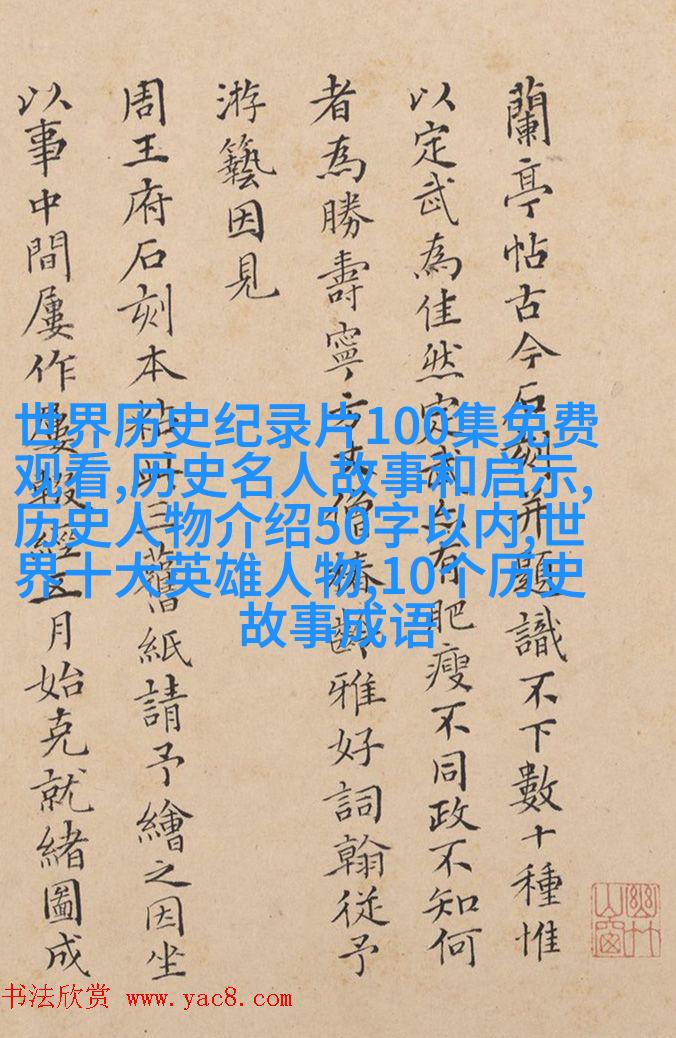 蘭亭帖古今石刻并題識不下數十種惟
以定武為佳然定武亦有肥瘦不同政不知何
者為勝壽寧方丈僧椿齡雅好詞翰從予
游藝因見
周王府石刻本粘册三舊紙請予繪之因坐
以事中間屢作屢輟經五月始克就緒圖成
世界历史纪录片100集免费
观看,历史名人故事和启示,
历史人物介绍50字以内,世
界十大英雄人物,10个历史
故事成语
书法欣赏 www.yac8.com